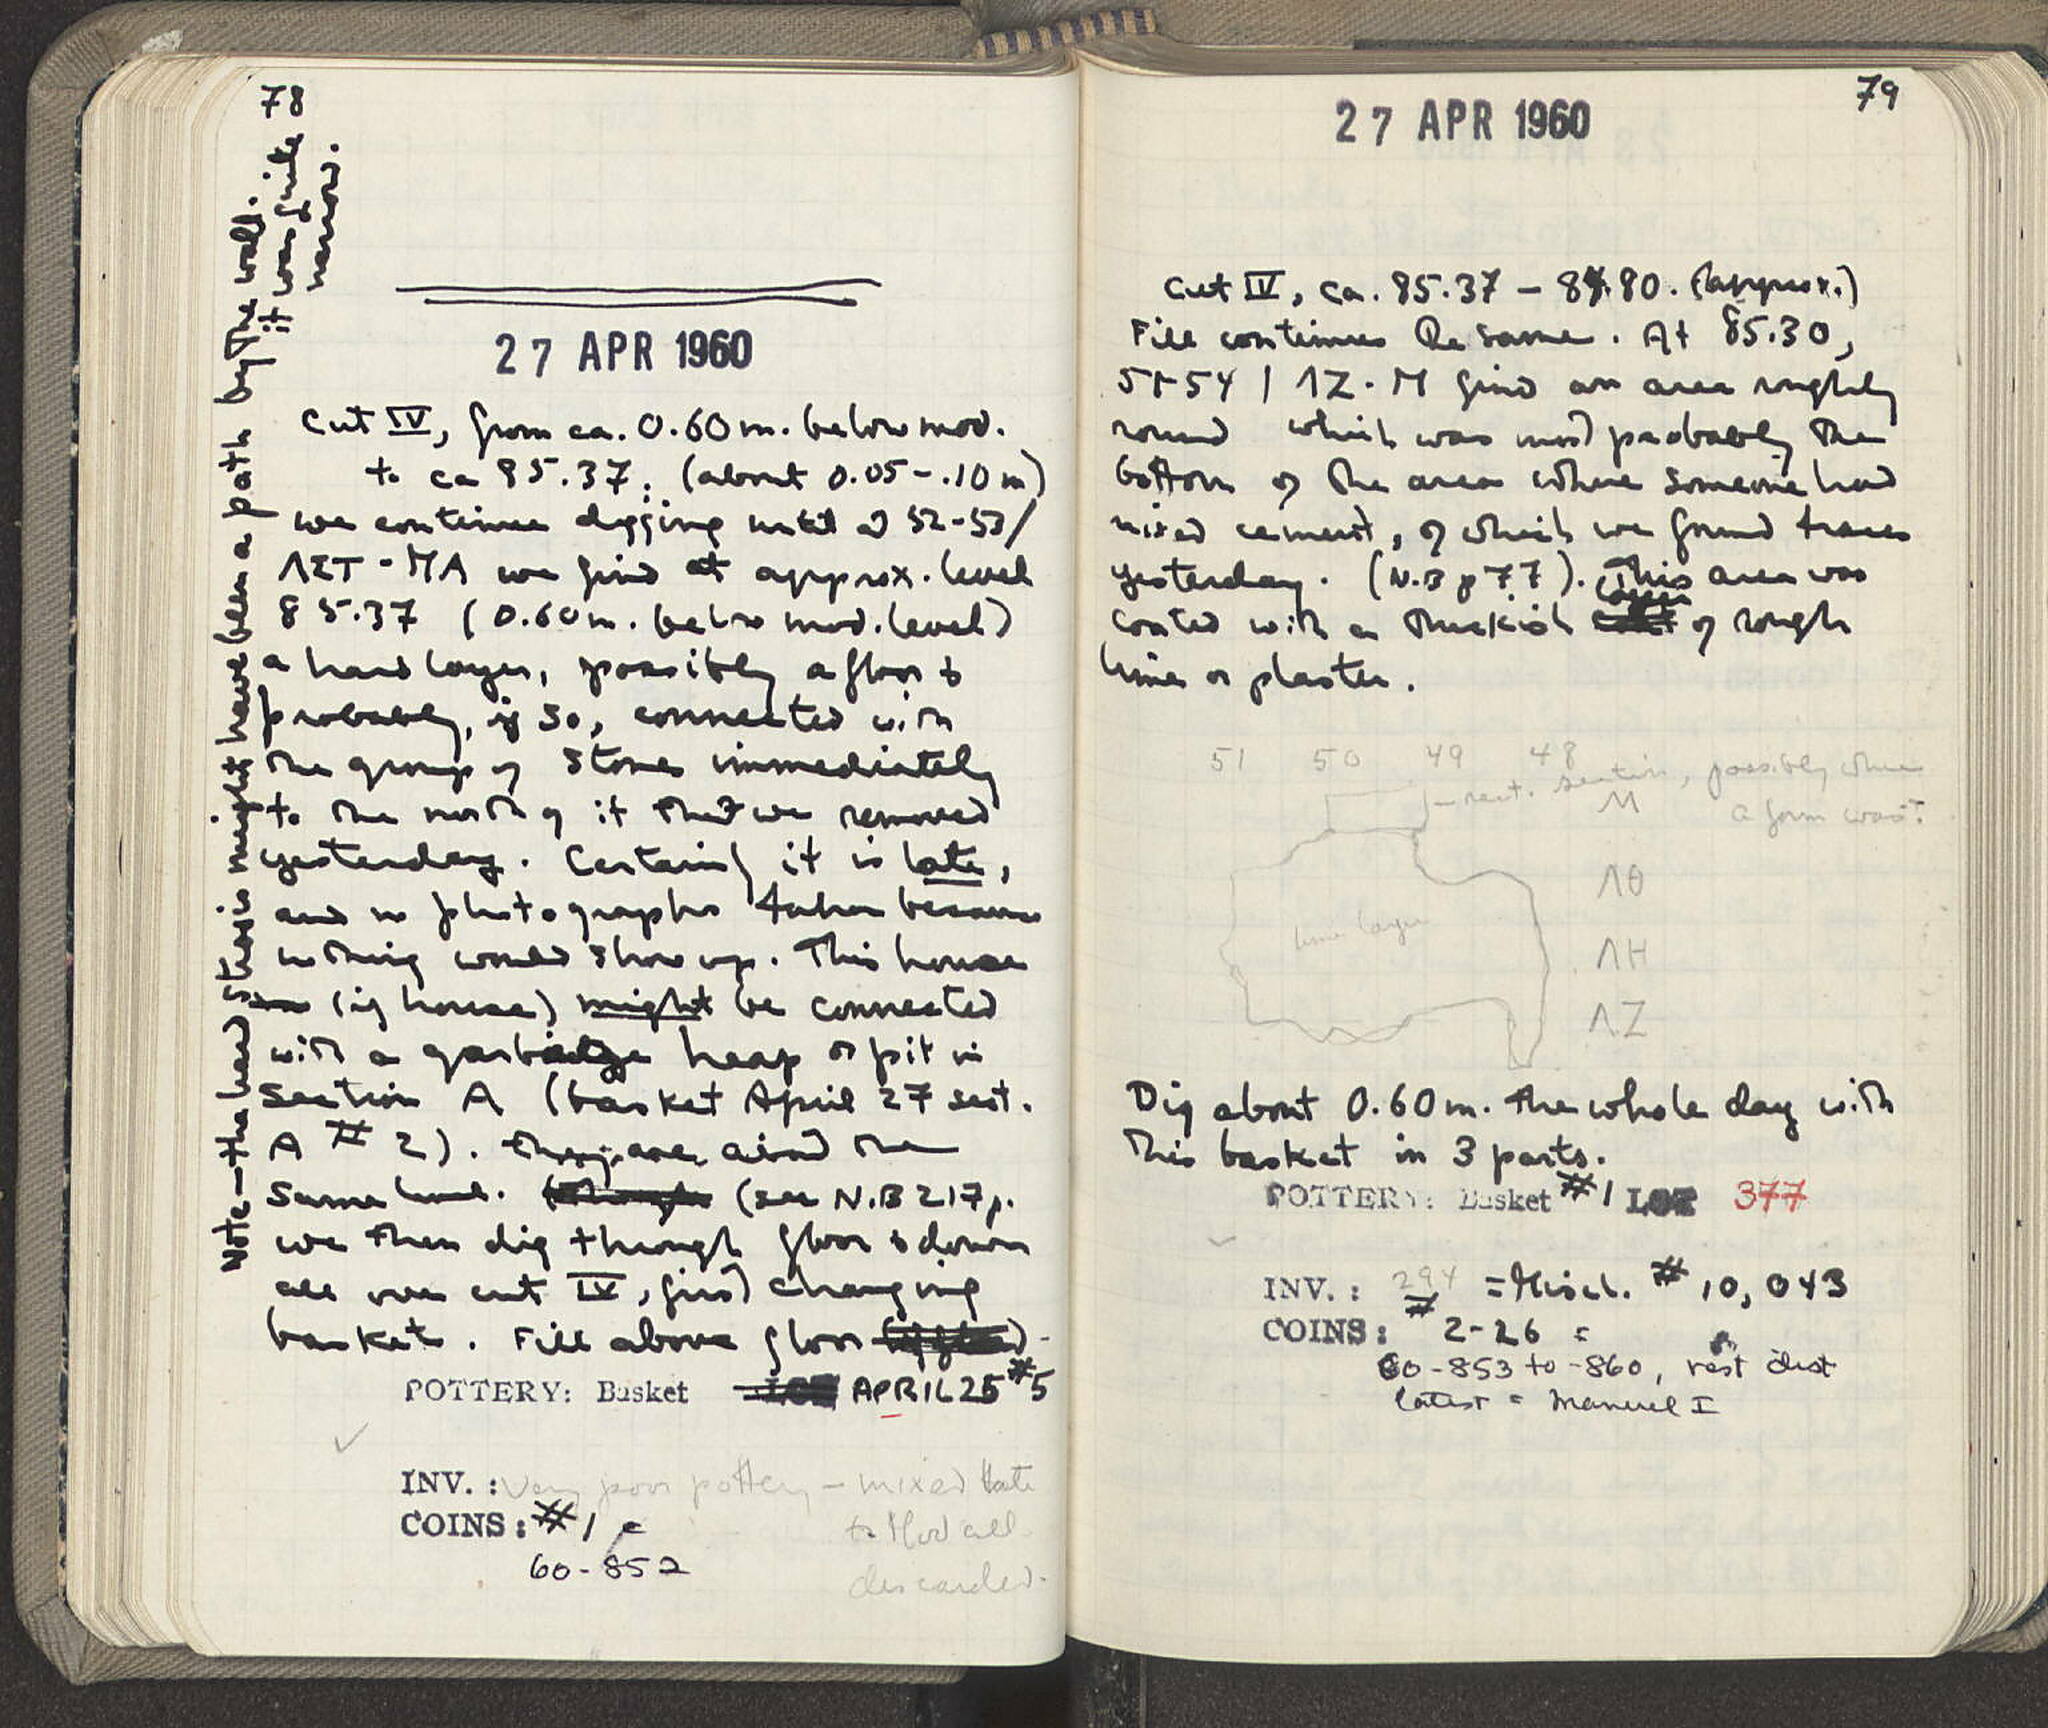 78
27 APR 1960
Cut IV, from ca. 0.60 m. below mod.
to ca 85.37. (about 0.05-.10 m)
we continue digging until at 52-53/
ΛΣΤ-ΜΑ we find at approx. level
85.37 (0.60 m. below mod. level)
a hard layer, possibly a floor &
probably, if so, connected with
the group of stones immediately
to the north of it that we removed
yesterday. Certainly it is late,
and no photographs taken because
nothing would show up. This house
(if house) might be connected
with a garbadge heap or pit in
Section A (basket April 27 sect.
A #2). They are about the
same level. (see N.B 217 p.
we then dig through floor & down
all over cut IV, first changing
basket. Fill above floor
POTTERY: Basket APRIL 25 #5
INV.: Very poor pottery - mixed late
to Mod all
discarded.
COINS: #1 =
60-852
Note - the hard stuff is might have been a path by the wall.
it was quite
narrow.
79
27 APR 1960
Cut IV, ca. 85.37 - 84.80. (approx.)
Fill continues the same. At 85.30,
51-54 / ΛΖ-Μ find an area roughly
round which was most probably the
bottom of the area where someone had
mixed cement, of which we found traces
yesterday. (N.B p 77). This area was
coated with a thickish layer of rough
lime or plaster.
51 50 49 48
rect. section, possibly where
a form was?
M
ΛΘ
lime layer
ΛΗ
ΛΖ
Dig about 0.60 m. the whole day with
this basket in 3 parts.
POTTERY: Basket #1 LOT 377
INV.: 294 = Miscl. # 10,043
COINS: # 2-26 =
60-853 to -860, rest dist
latest = Manuel I